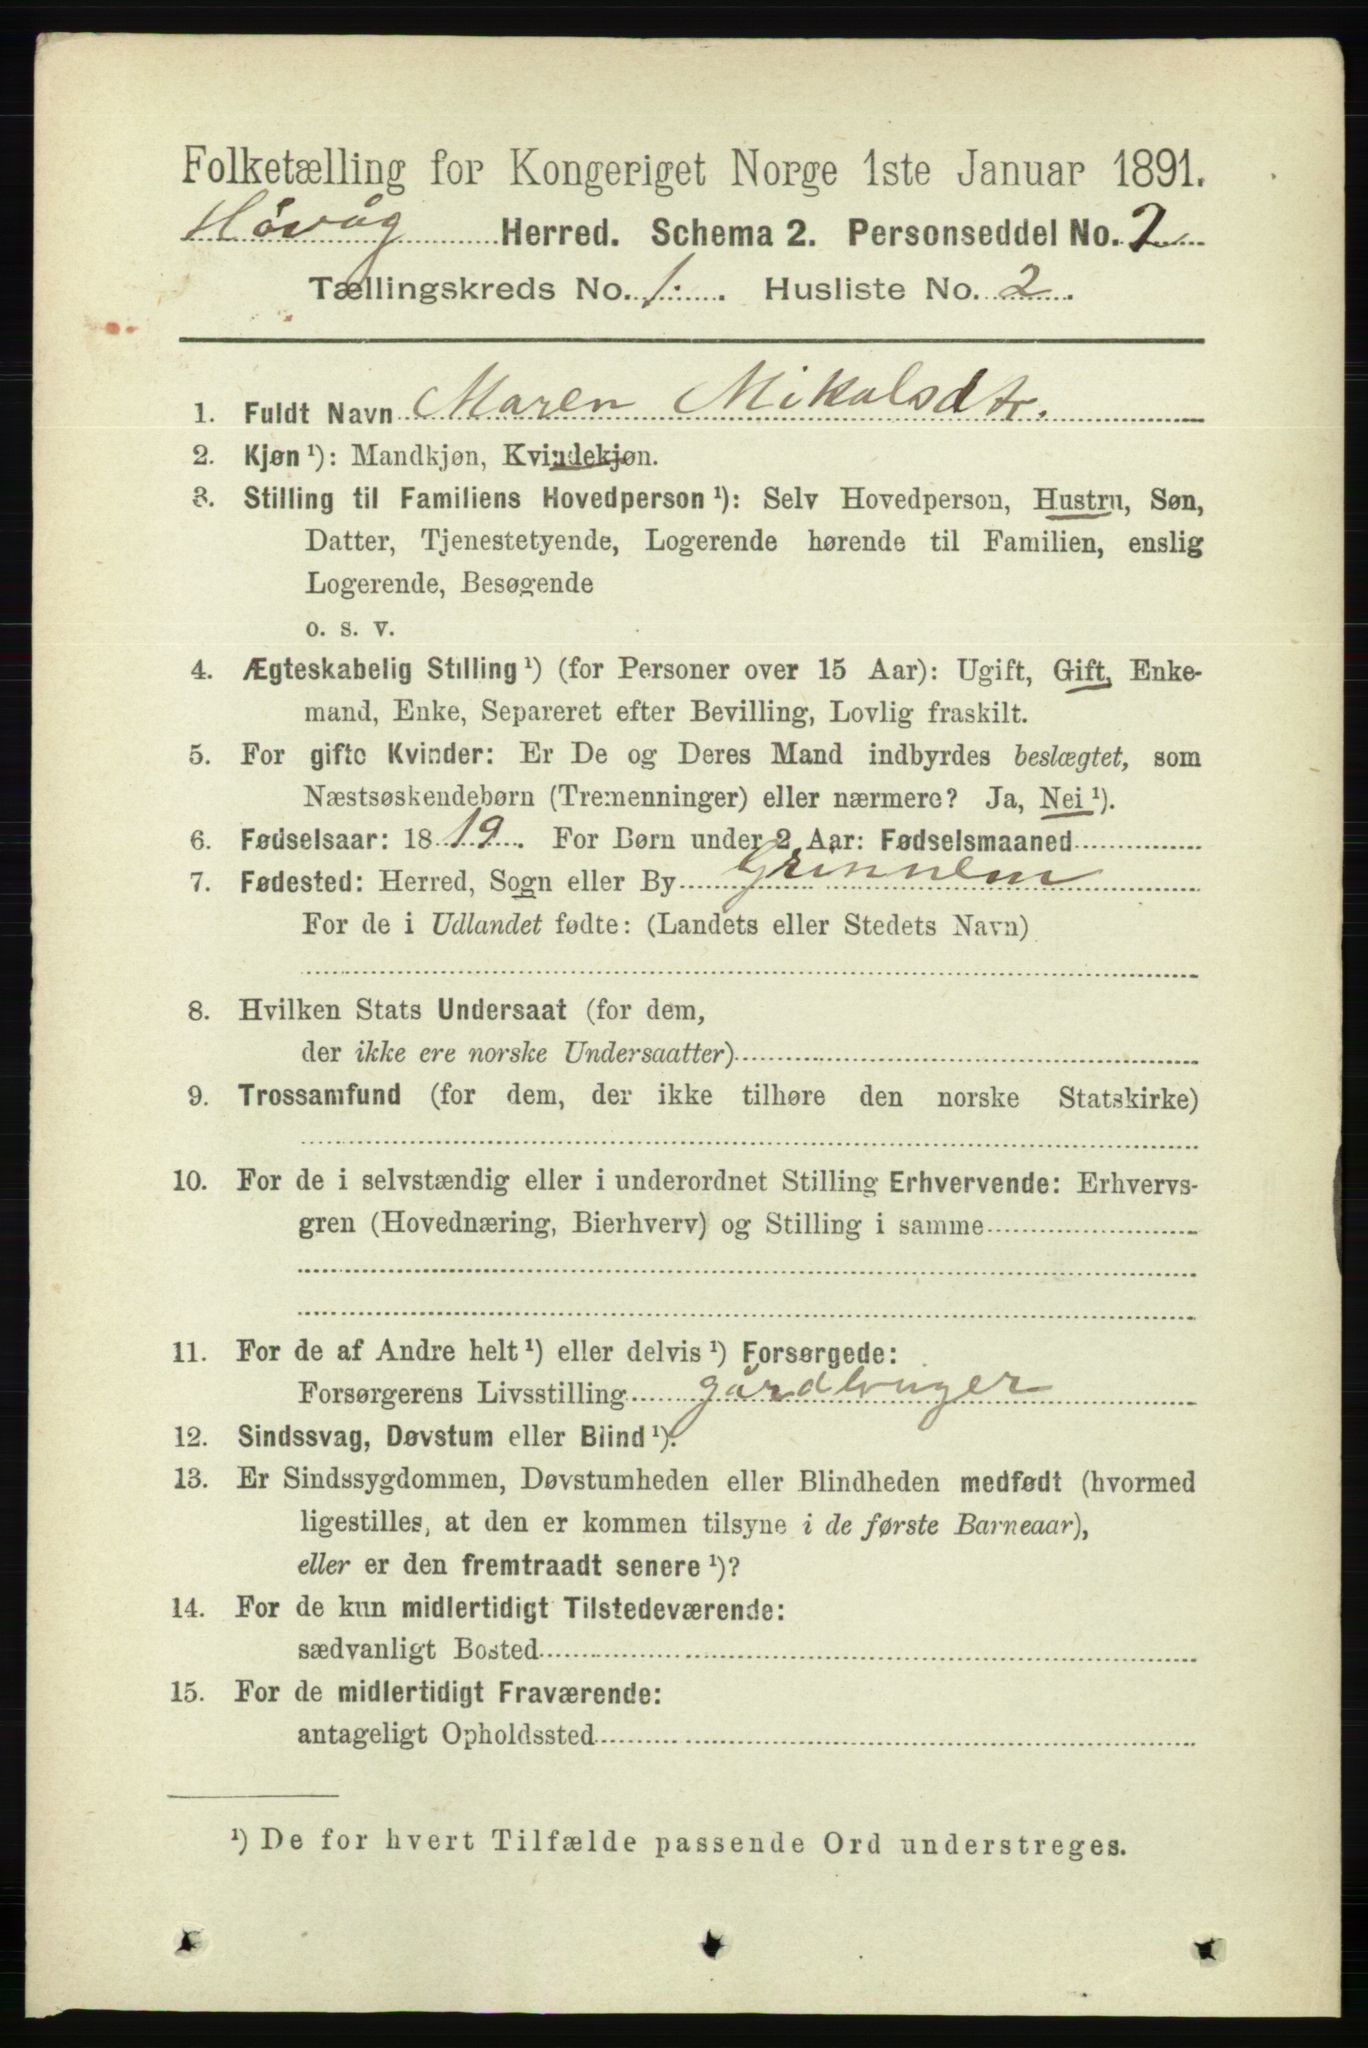 Folketælling for Kongeriget Norge 1ste Januar 1891.
Høvåg Herred. Schema 2. Personseddel No. 2
Tællingskreds No. 1. Husliste No. 2.
1. Fuldt Navn Maren Mikalsdtr.
2. Kjøn ¹): Mandkjøn, Kvindekjøn.
3. Stilling til Familiens Hovedperson ¹): Selv Hovedperson, Hustru, Søn,
Datter, Tjenestetyende, Logerende hørende til Familien, enslig
Logerende, Besøgende
o. s. v.
4. Ægteskabelig Stilling ¹) (for Personer over 15 Aar): Ugift, Gift, Enke-
mand, Enke, Separeret efter Bevilling, Lovlig fraskilt.
5. For gifte Kvinder: Er De og Deres Mand indbyrdes beslægtet, som
Næstsøskendebørn (Tremenninger) eller nærmere? Ja, Nei ¹).
6. Fødselsaar: 1819. For Børn under 2 Aar: Fødselsmaaned
7. Fødested: Herred, Sogn eller By
For de i Udlandet fødte: (Landets eller Stedets Navn)
8. Hvilken Stats Undersaat (for dem,
der ikke ere norske Undersaatter)
9. Trossamfund (for dem, der ikke tilhøre den norske Statskirke)
10. For de i selvstændig eller i underordnet Stilling Erhvervende: Erhvervs-
gren (Hovednæring, Bierhverv) og Stilling i samme
11. For de af Andre helt ¹) eller delvis ¹) Forsørgede:
Forsørgerens Livsstilling gårdbruger
12. Sindssvag, Døvstum eller Blind ¹).
13. Er Sindssygdommen, Døvstumheden eller Blindheden medfødt (hvormed
ligestilles, at den er kommen tilsyne i de første Barneaar),
eller er den fremtraadt senere ¹)?
14. For de kun midlertidigt Tilstedeværende:
sædvanligt Bosted
15. For de midlertidigt Fraværende:
antageligt Opholdssted
¹) De for hvert Tilfælde passende Ord understreges.